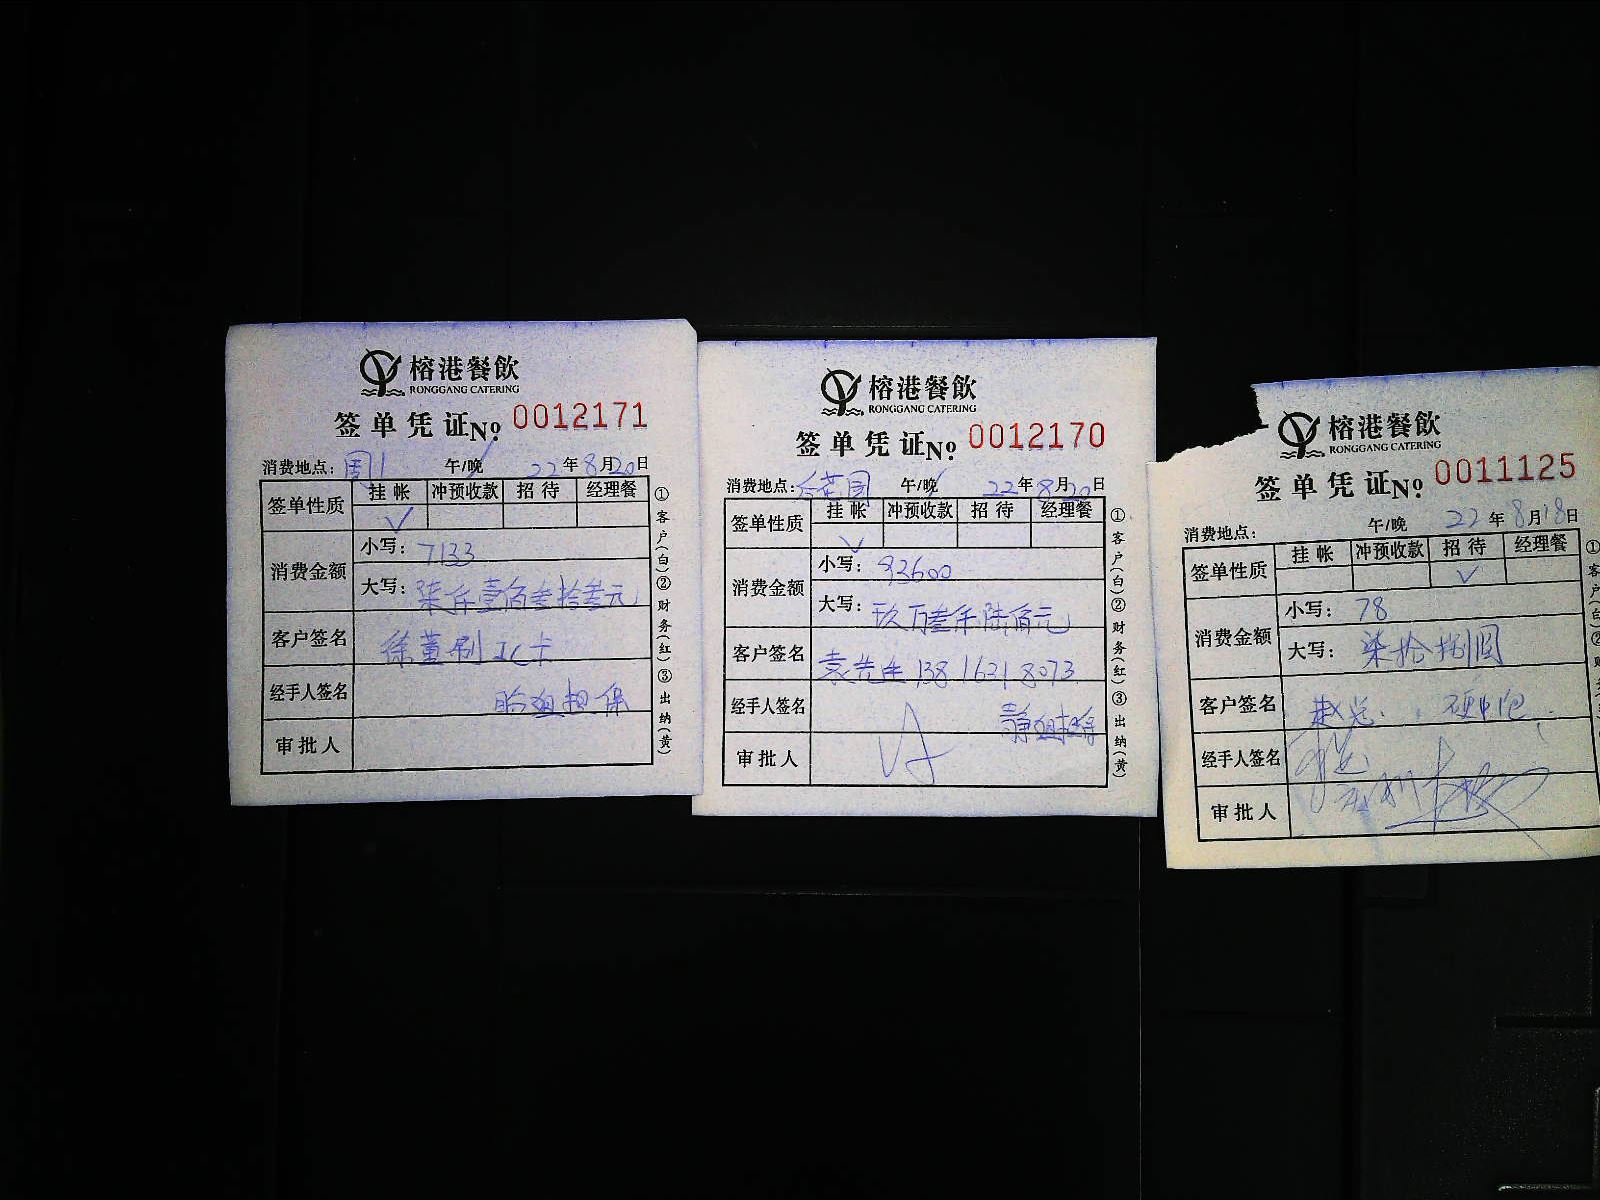 榕港餐飲
RONGGANG CATERING
签单凭证 No 0012171
消费地点: 周1 午/晚 22年8月20日
签单性质 挂帐 冲预收款 招待 经理餐
消费金额 小写: 7133
大写: 柒仟壹佰叁拾叁元
客户签名 徐董刷IC卡
经手人签名 担保
审批人
①客户(白)②财务(红)③出纳(黄)
榕港餐飲
RONGGANG CATERING
签单凭证 No 0012170
消费地点: 午/晚 22年8月20日
签单性质 挂帐 冲预收款 招待 经理餐
消费金额 小写: 93600
大写: 玖万叁仟陆佰元
客户签名 袁先生 138 1631 8073
经手人签名 静姐担保
审批人
①客户(白)②财务(红)③出纳(黄)
榕港餐飲
RONGGANG CATERING
签单凭证 No 0011125
消费地点: 午/晚 22年8月18日
签单性质 挂帐 冲预收款 招待 经理餐
消费金额 小写: 78
大写: 柒拾捌圆
客户签名 赵总
经手人签名
审批人
①客户(白)②